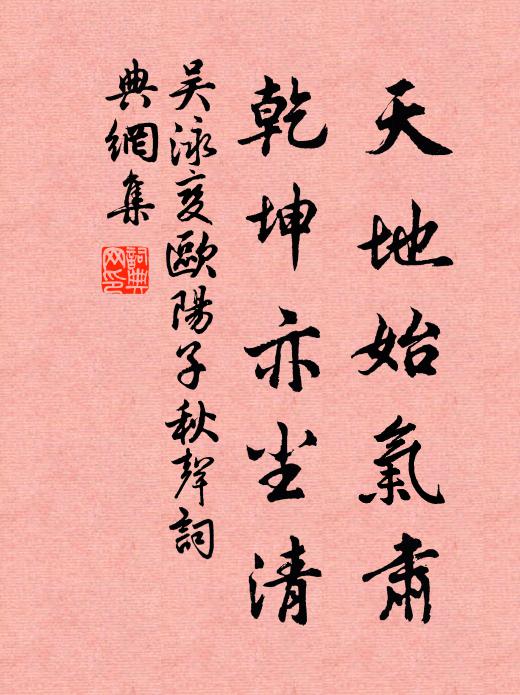 天地始氣肅
乾坤亦尘清
吴泳变歐陽子秋聲詞
典網集
詞典網印